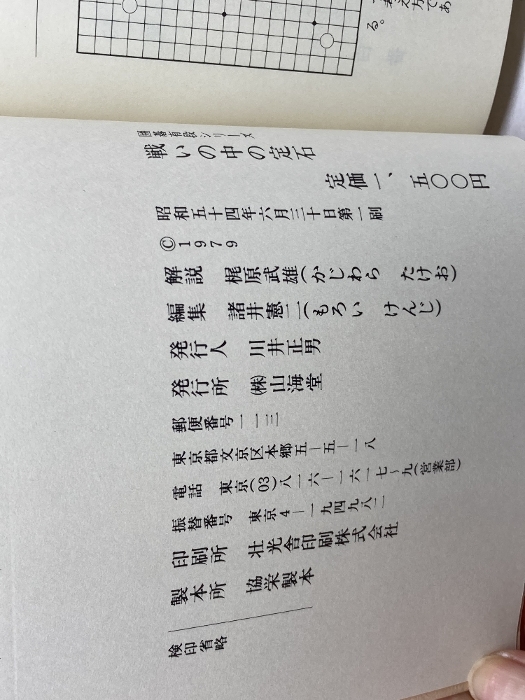 えで
方あ
る。
囲碁有段シリーズ
戦いの中の定石
定価一、五〇〇円
昭和五十四年六月三十日第一刷
©1979
解説 梶原武雄(かじわら たけお)
編集 諸井憲二(もろい けんじ)
発行人 川井正男
発行所 ㈱山海堂
郵便番号一一三
東京都文京区本郷五―五―一八
電話 東京(03)八一六―一六一七~九(営業部)
振替番号 東京4―一九四九八二
印刷所 壮光舎印刷株式会社
製本所 協栄製本
検印省略